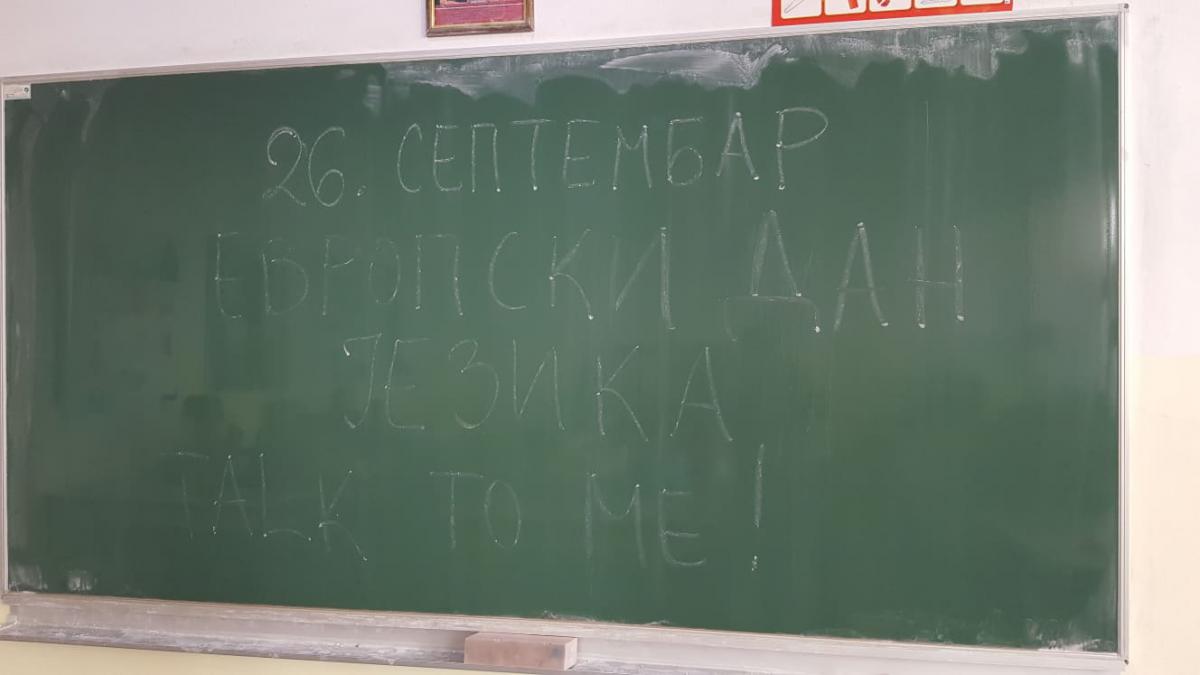 26. СЕПТЕМБАР
ЕВРОПСКИ ДАН
ЈЕЗИКА
TALK TO ME!